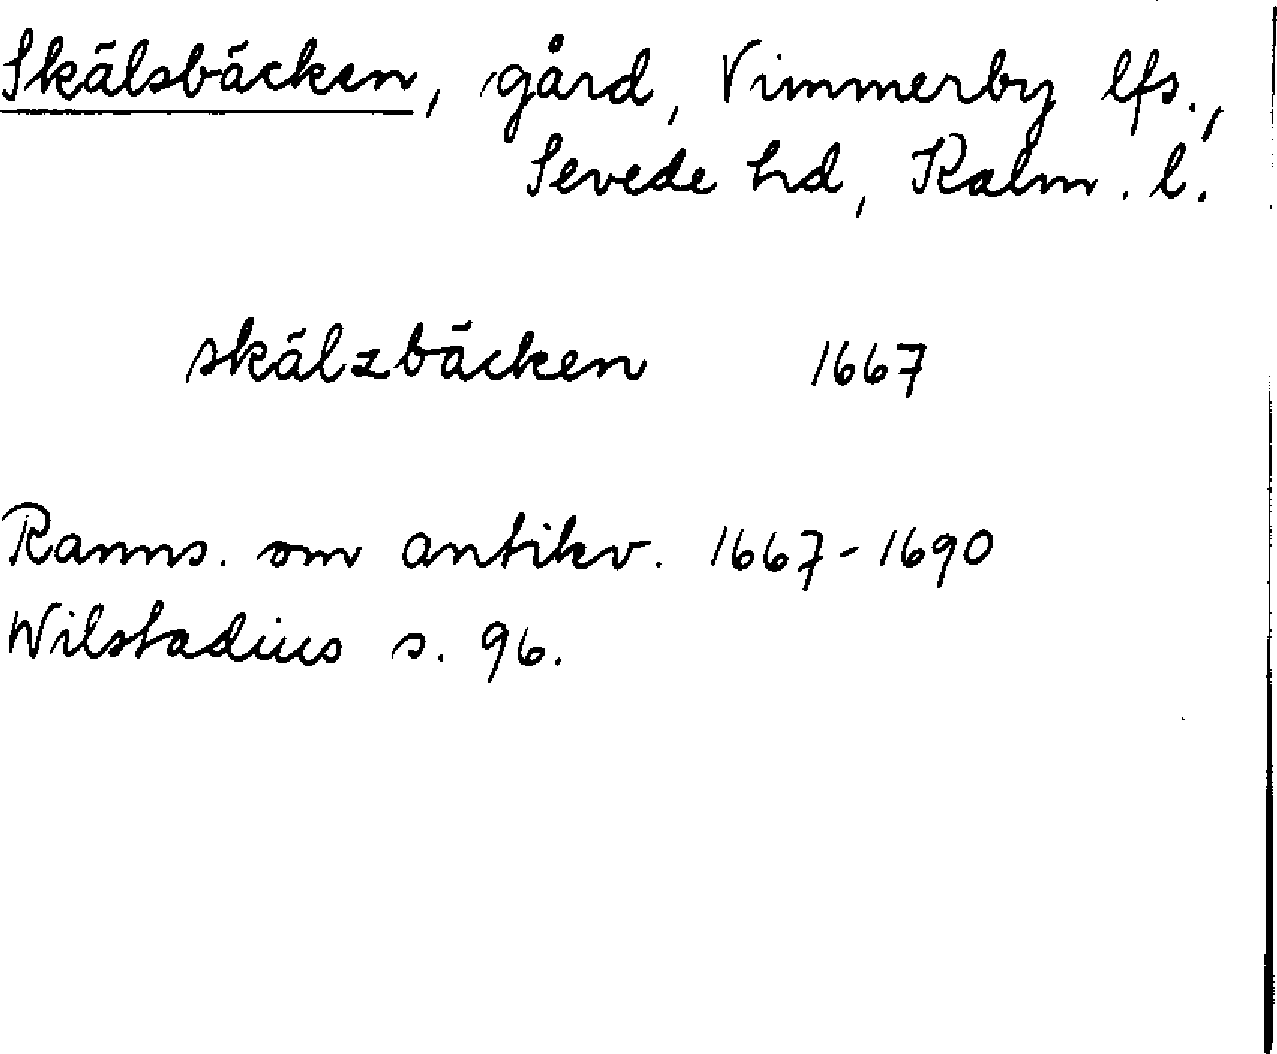 Skälsbäcken, gård, Vimmerby lfs.,
Sevede hd, Kalm. l.
skälzbäcken 1667
Ranns. om antikv. 1667-1690
Wilstadius s. 96.